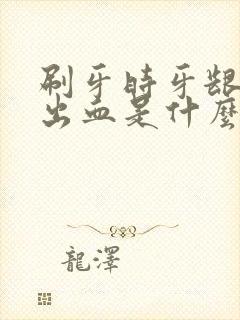 刷牙時牙齦
出血是什麼
龍澤